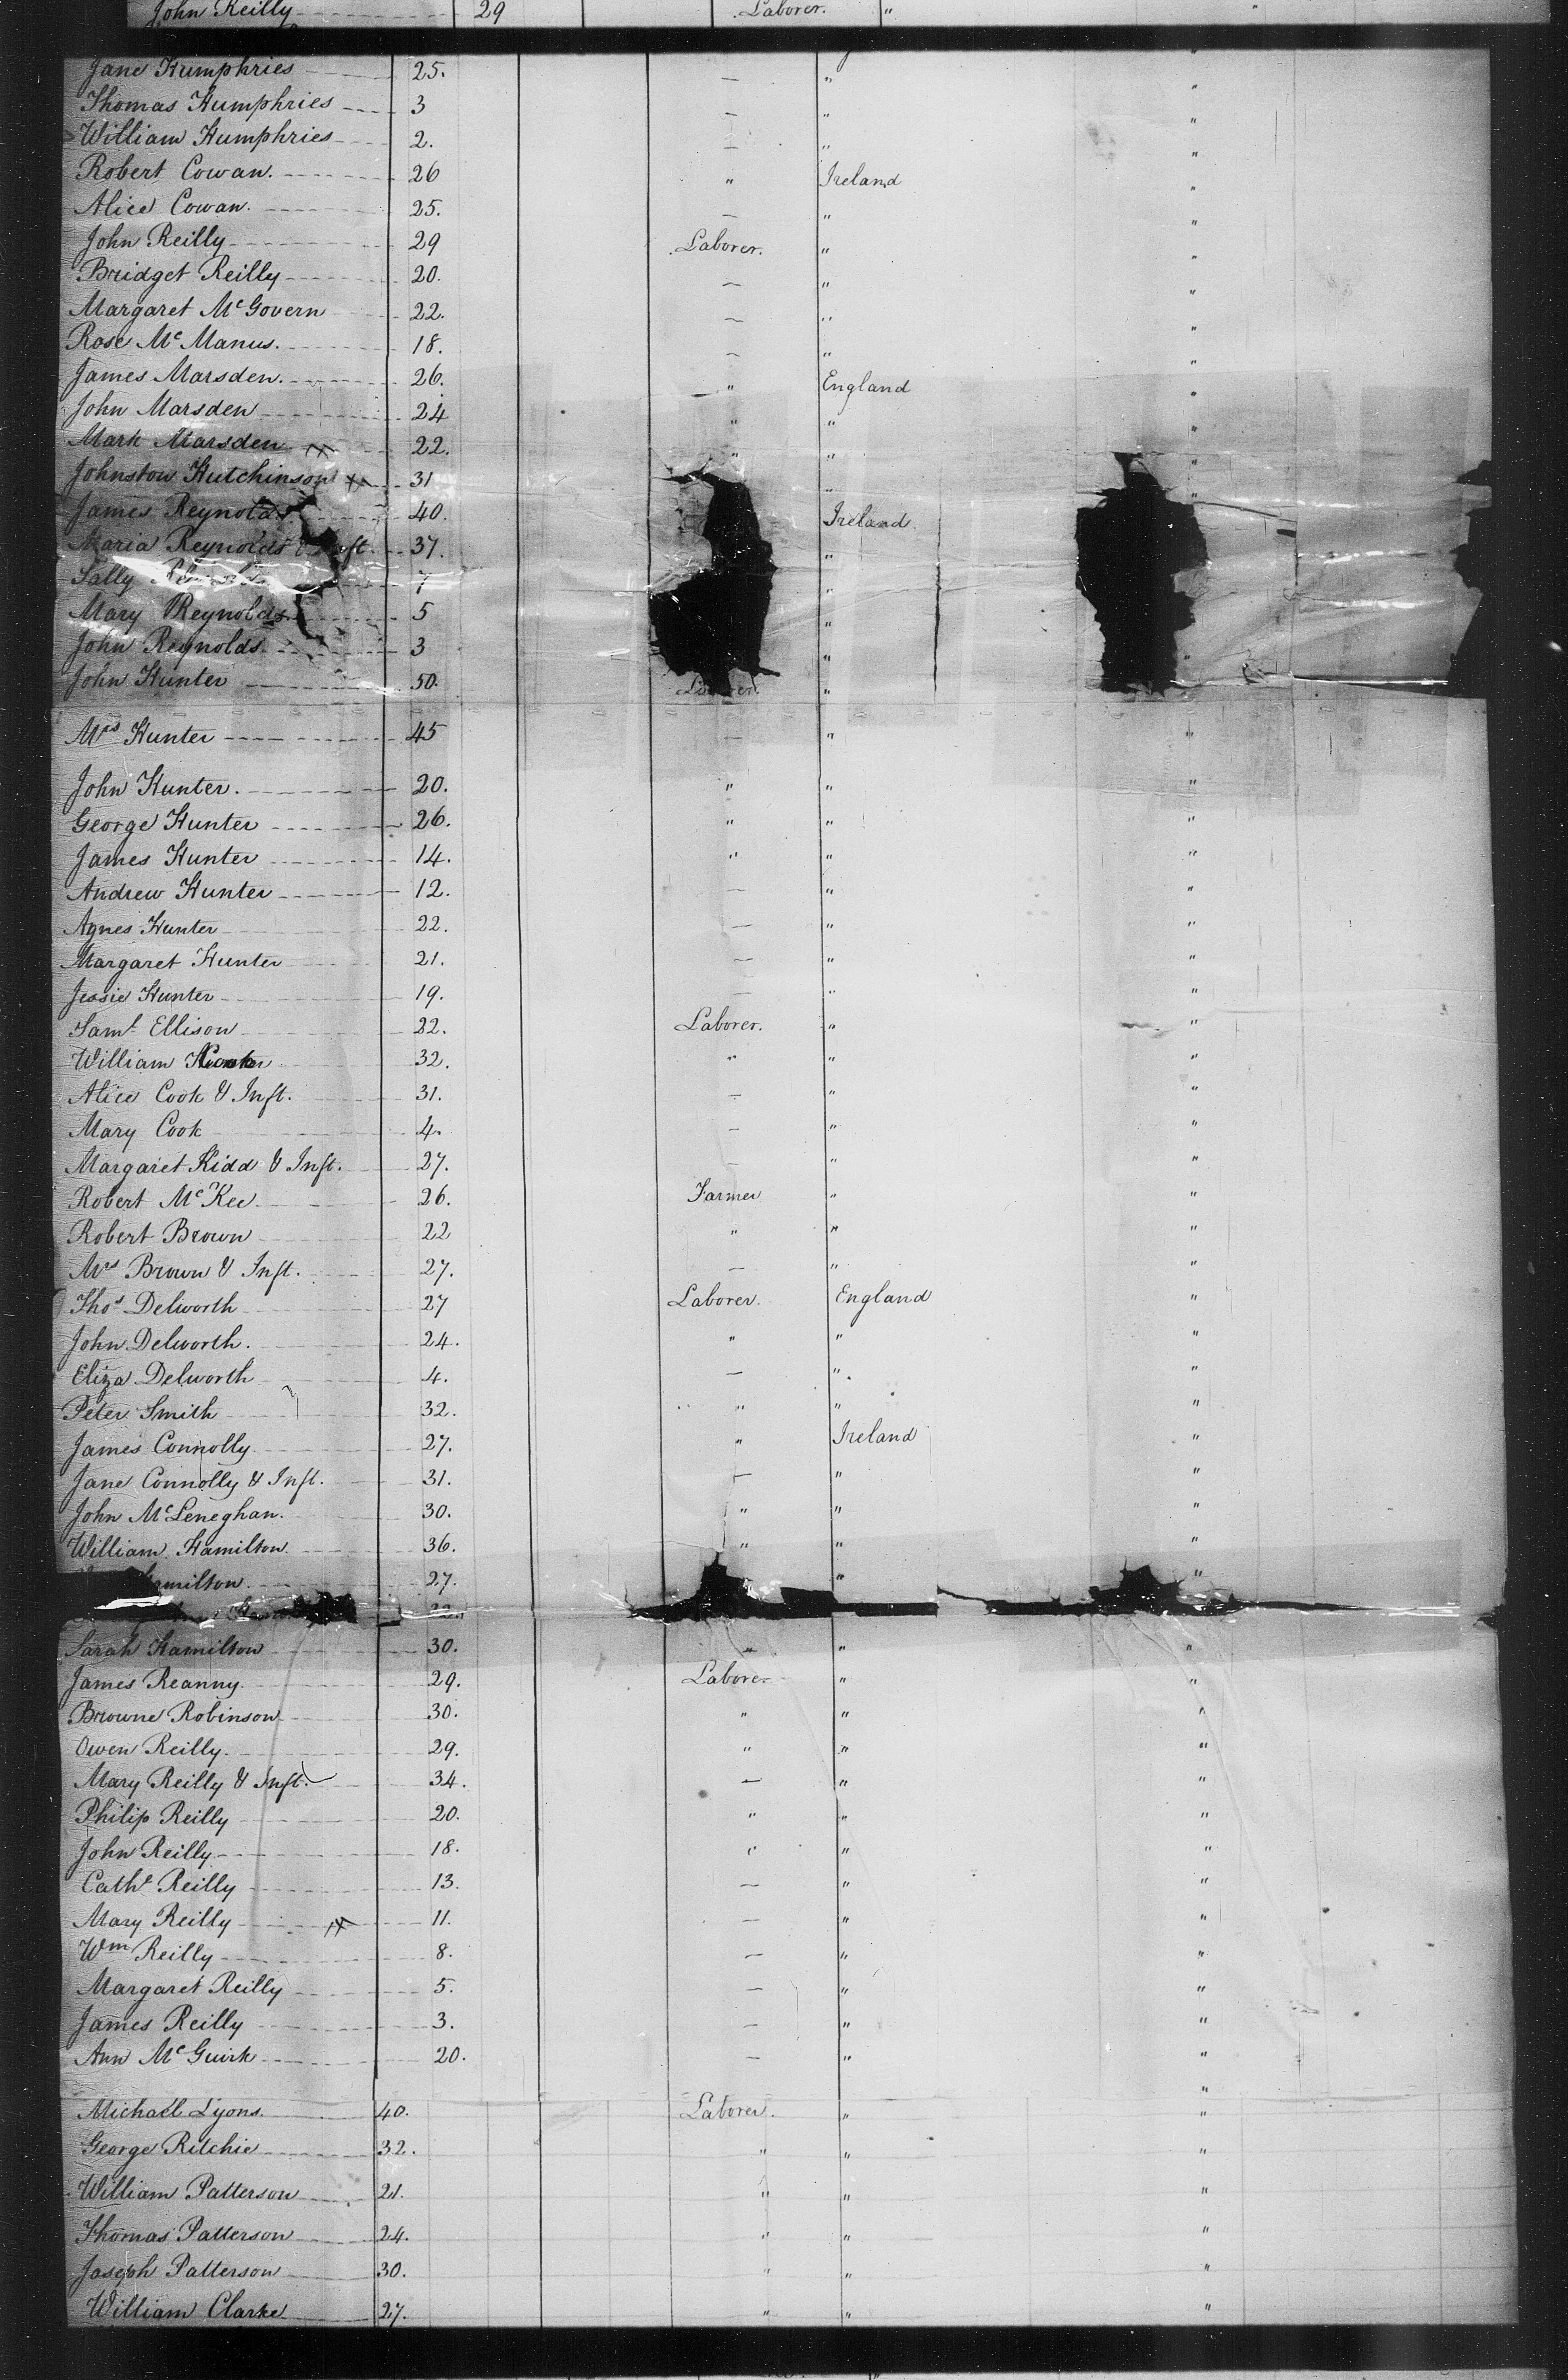 John Reilly 29 Laborer. "
Jane Humphries 25. — " "
Thomas Humphries 3 — " "
William Humphries 2. — " "
Robert Cowan. 26 " Ireland "
Alice Cowan. 25. — " "
John Reilly 29 Laborer. " "
Bridget Reilly 20. — " "
Margaret McGovern 22. — " "
Rose McManus. 18. — " "
James Marsden. 26. " England "
John Marsden 24 " " "
Mark Marsden 22. " " "
Johnston Hutchinson 31 " "
James Reynolds 40. Ireland.
Maria Reynolds & Inft. 37. "
Sally 7 "
Mary Reynolds 5 "
John Reynolds. 3 " "
John Hunter 50. Laborer. "
Mrs Hunter 45 — " "
John Hunter. 20. " " "
George Hunter 26. " " "
James Hunter 14. " " "
Andrew Hunter 12. — " "
Agnes Hunter 22. — " "
Margaret Hunter 21. — " "
Jessie Hunter 19. — " "
Saml Ellison 22. Laborer. " "
William Cook 32. " " "
Alice Cook & Inft. 31. — " "
Mary Cook 4. — " "
Margaret Kidd & Inft. 27. — " "
Robert McKee 26. Farmer " "
Robert Brown 22 " " "
Mrs Brown & Inft. 27. — " "
Thos Delworth 27 Laborer. England "
John Delworth. 24. " " "
Eliza Delworth 4. — " "
Peter Smith 32. " " "
James Connolly 27. " Ireland "
Jane Connolly & Inft. 31. — " "
John McLeneghan. 30. " " "
William Hamilton 36. " " "
Hamilton. 27. " "
Sarah Hamilton 30. " " "
James Reanny. 29. Laborer " "
Browne Robinson 30. " " "
Owen Reilly. 29. " " "
Mary Reilly & Inft. 34. — " "
Philip Reilly 20. " " "
John Reilly 18. " " "
Cathe Reilly 13. — " "
Mary Reilly 11. — " "
Wm Reilly 8. — " "
Margaret Reilly 5. — " "
James Reilly 3. — " "
Ann McGuirk 20. — " "
"
Michael Lyons. 40. Laborer. " "
George Ritchie 32. " " "
William Patterson 21. " " "
Thomas Patterson 24. " " "
Joseph Patterson 30. " " "
William Clarke 27. " " "